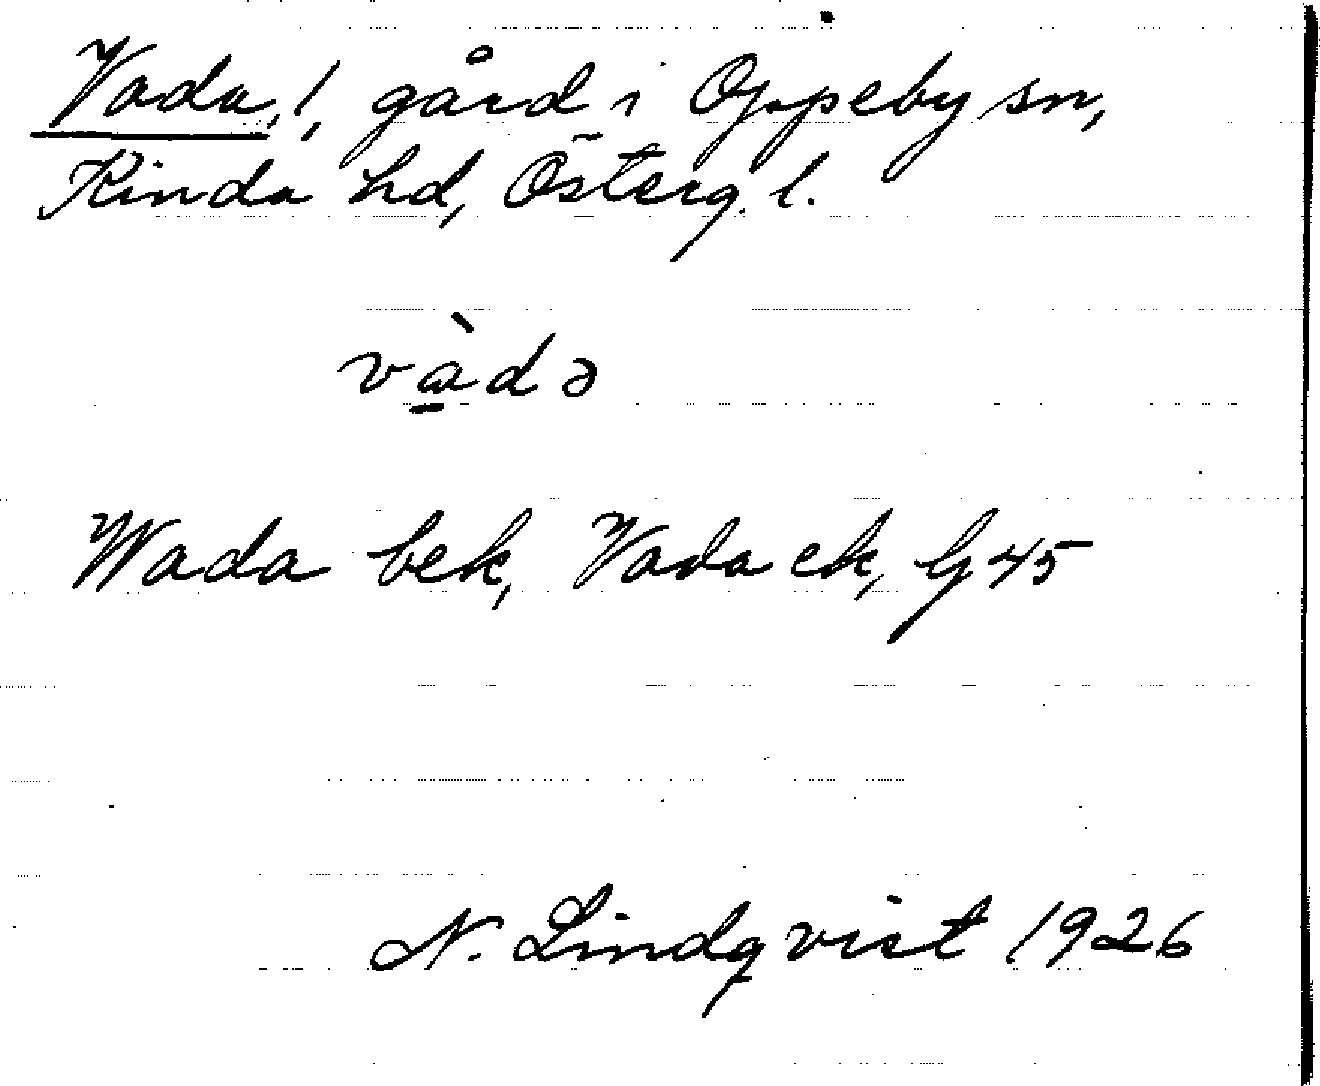 Vada, 1, gård i Oppeby sn,
Kinda hd, Österg. l.
và̱də
Wada bek, Vada ek, G45
N. Lindqvist 1926